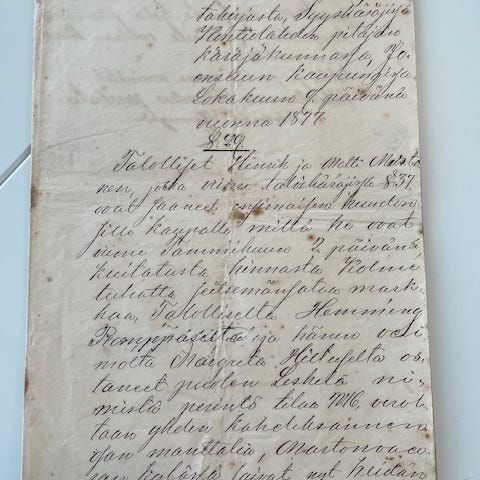 takirjasta, Syyskäräjissä
Kontiolahden pitäjän
käräjäkunnassa, Jo-
ensuun kaupungissa
Lokakuun 9. päivänä
vuonna 1877.
§. 29.
Talolliset Henrik ja Matti Mustо-
nen, jotka viime talvikäräjissä §. 37.
ovat saaneet ensimäisen huudon
sille kaupalle millä he ovat
viime Tammikuun 2. päivänä,
kuitatusta hinnasta Kolme
tuhatta seitsemänsataa mark-
kaa, Talolliselta Hemming
Romppaselta ja hänen vai-
molta Margreta Hiltuselta os-
taneet puolen Leskelä ni-
mistä perintö tilaa №6, verol-
taan yhden kahdeksannen
osan manttalia,
kylässä saivat nyt heidän